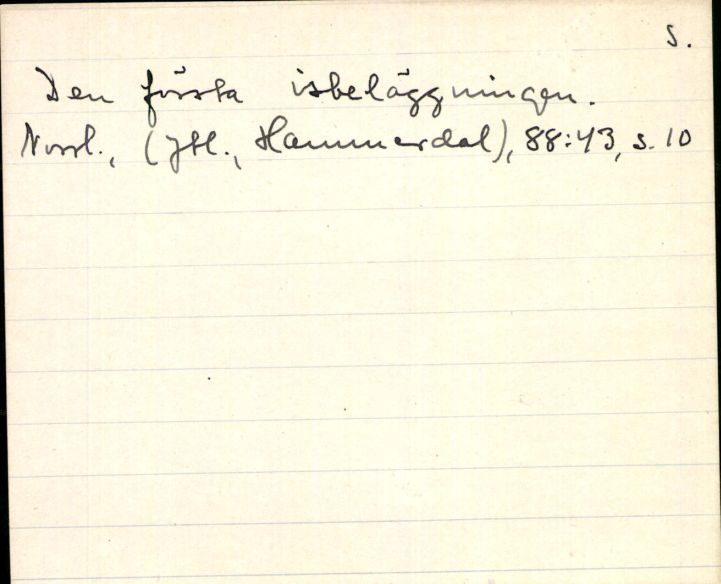 s.
Den första isbeläggningen.
Norrl., (Jtl., Hammerdal), 88:43, s. 10